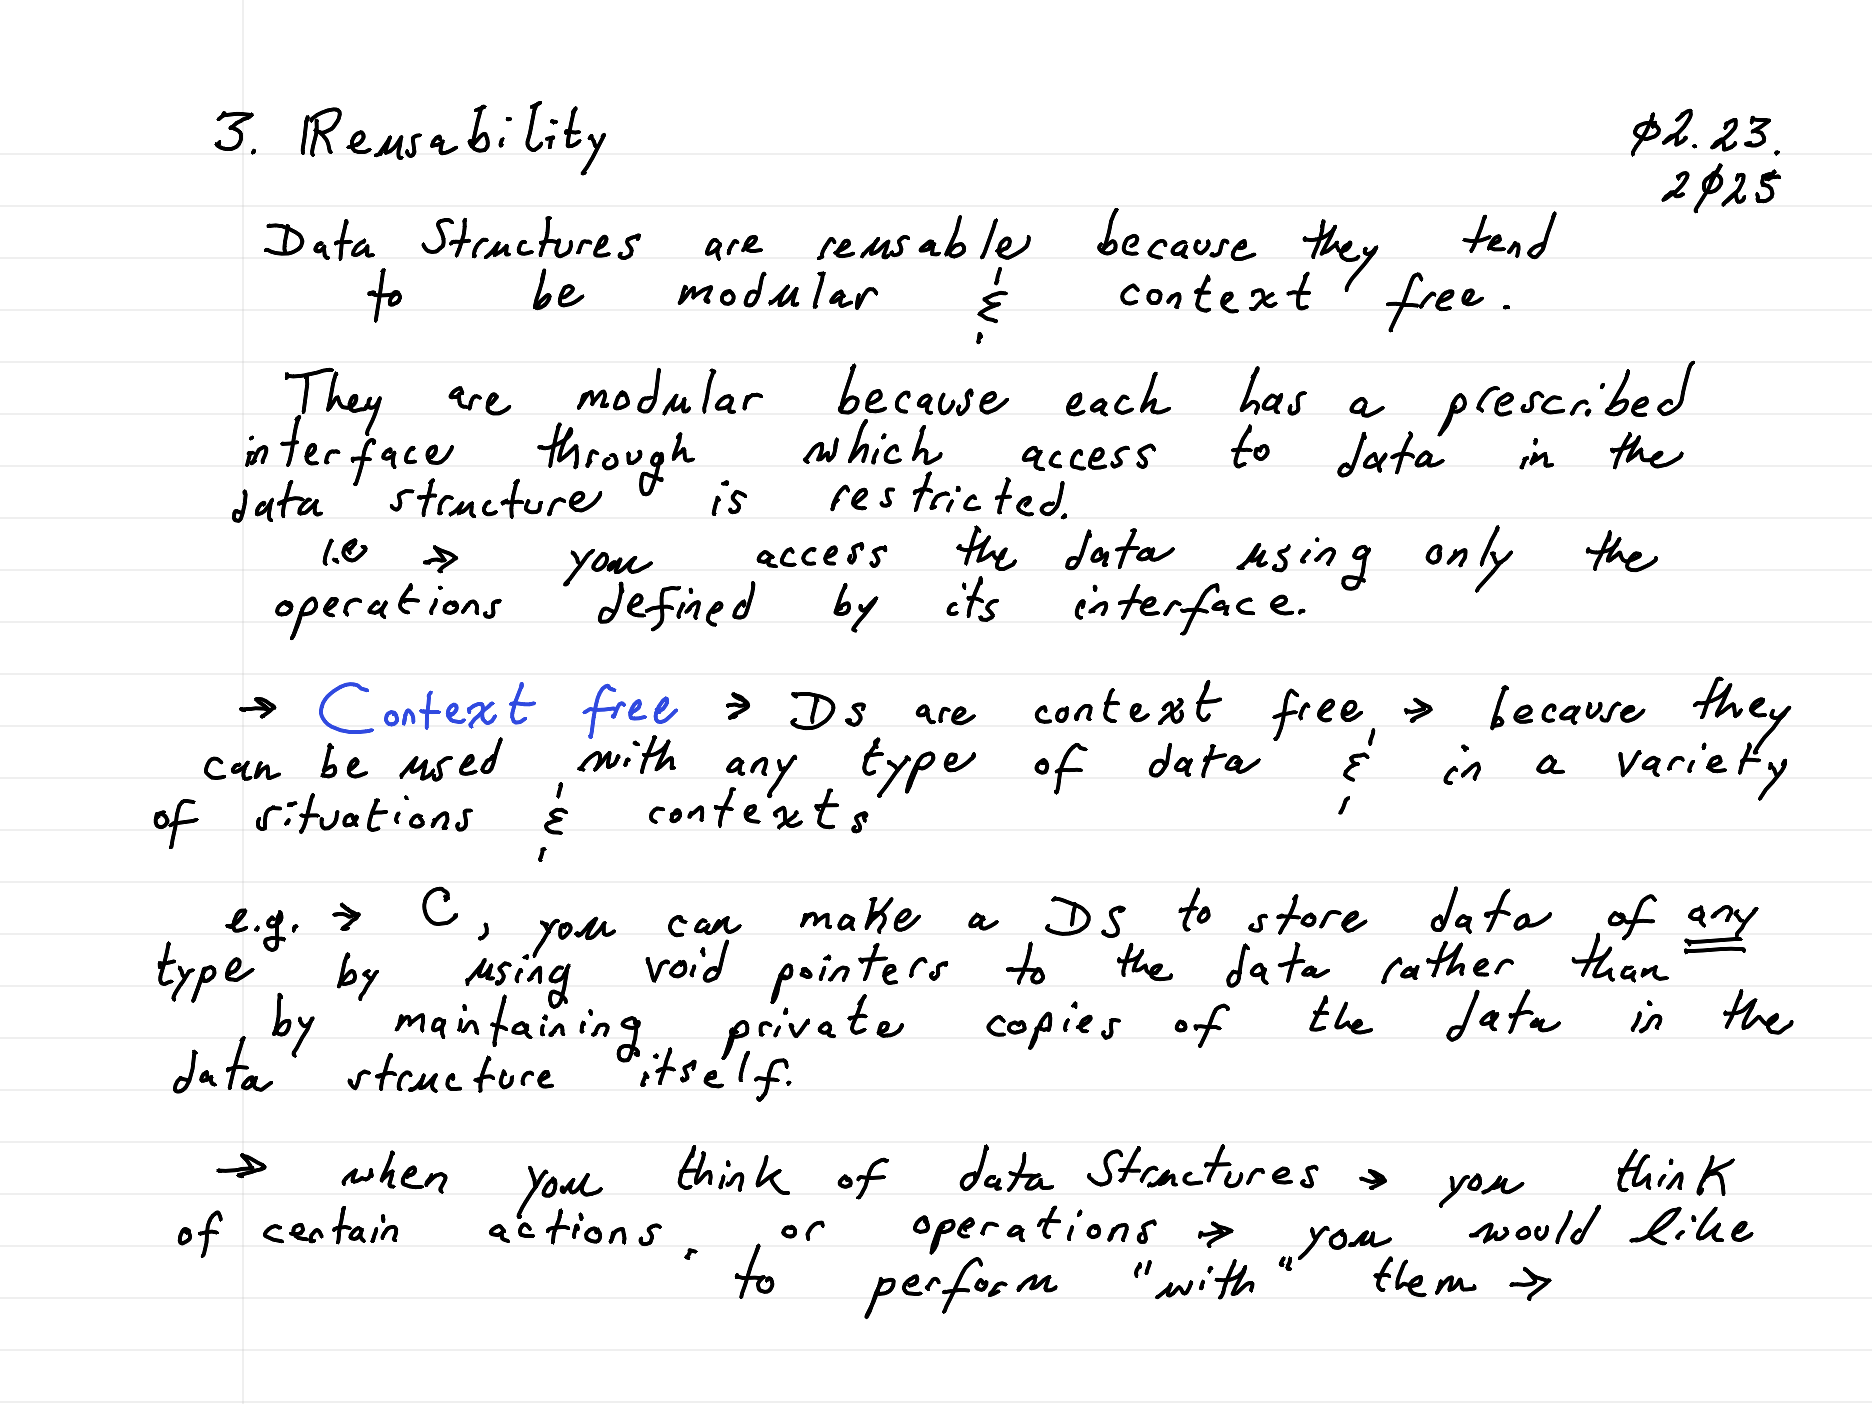 3. Reusability
Ø2.23.
2Ø25
Data Structures are reusable because they tend
to be modular & context free.
They are modular because each has a prescribed
interface through which access to data in the
data structure is restricted.
i.e → you access the data using only the
operations defined by its interface.
→ Context free → DS are context free → because they
can be used with any type of data & in a variety
of situations & contexts
e.g. → C, you can make a DS to store data of any
type by using void pointers to the data rather than
by maintaining private copies of the data in the
data structure itself.
→ when you think of data Structures → you think
of certain actions, or operations → you would like
to perform "with" them →